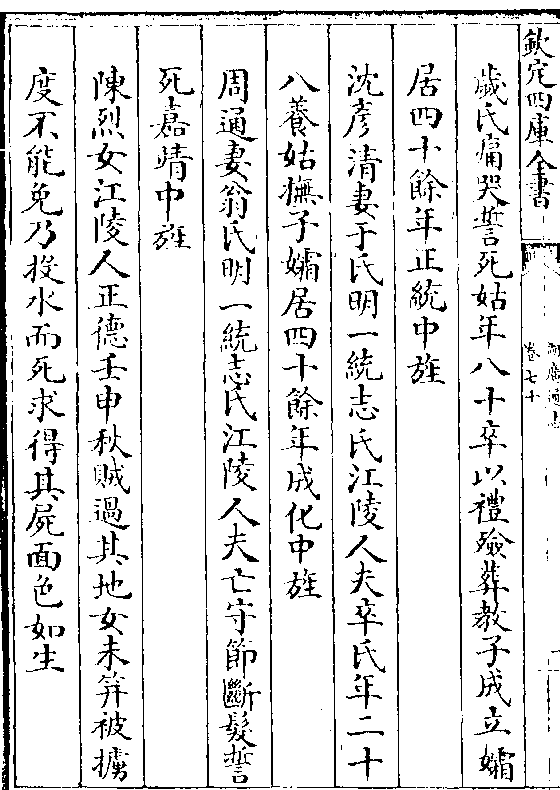 欽定四庫全書
卷七十
歲氏痛哭誓死姑年八十卒以禮殮葬教子成立孀
居四十餘年正統中旌
沈彥清妻于氏明一統志氏江陵人夫卒氏年二十
八養姑撫子孀居四十餘年成化中旌
周通妻翁氏明一統志氏江陵人夫亡守節斷髮誓
死嘉靖中旌
陳烈女江陵人正德壬申秋賊過其地女未笄被擄
度不能免乃投水而死求得其屍面色如生